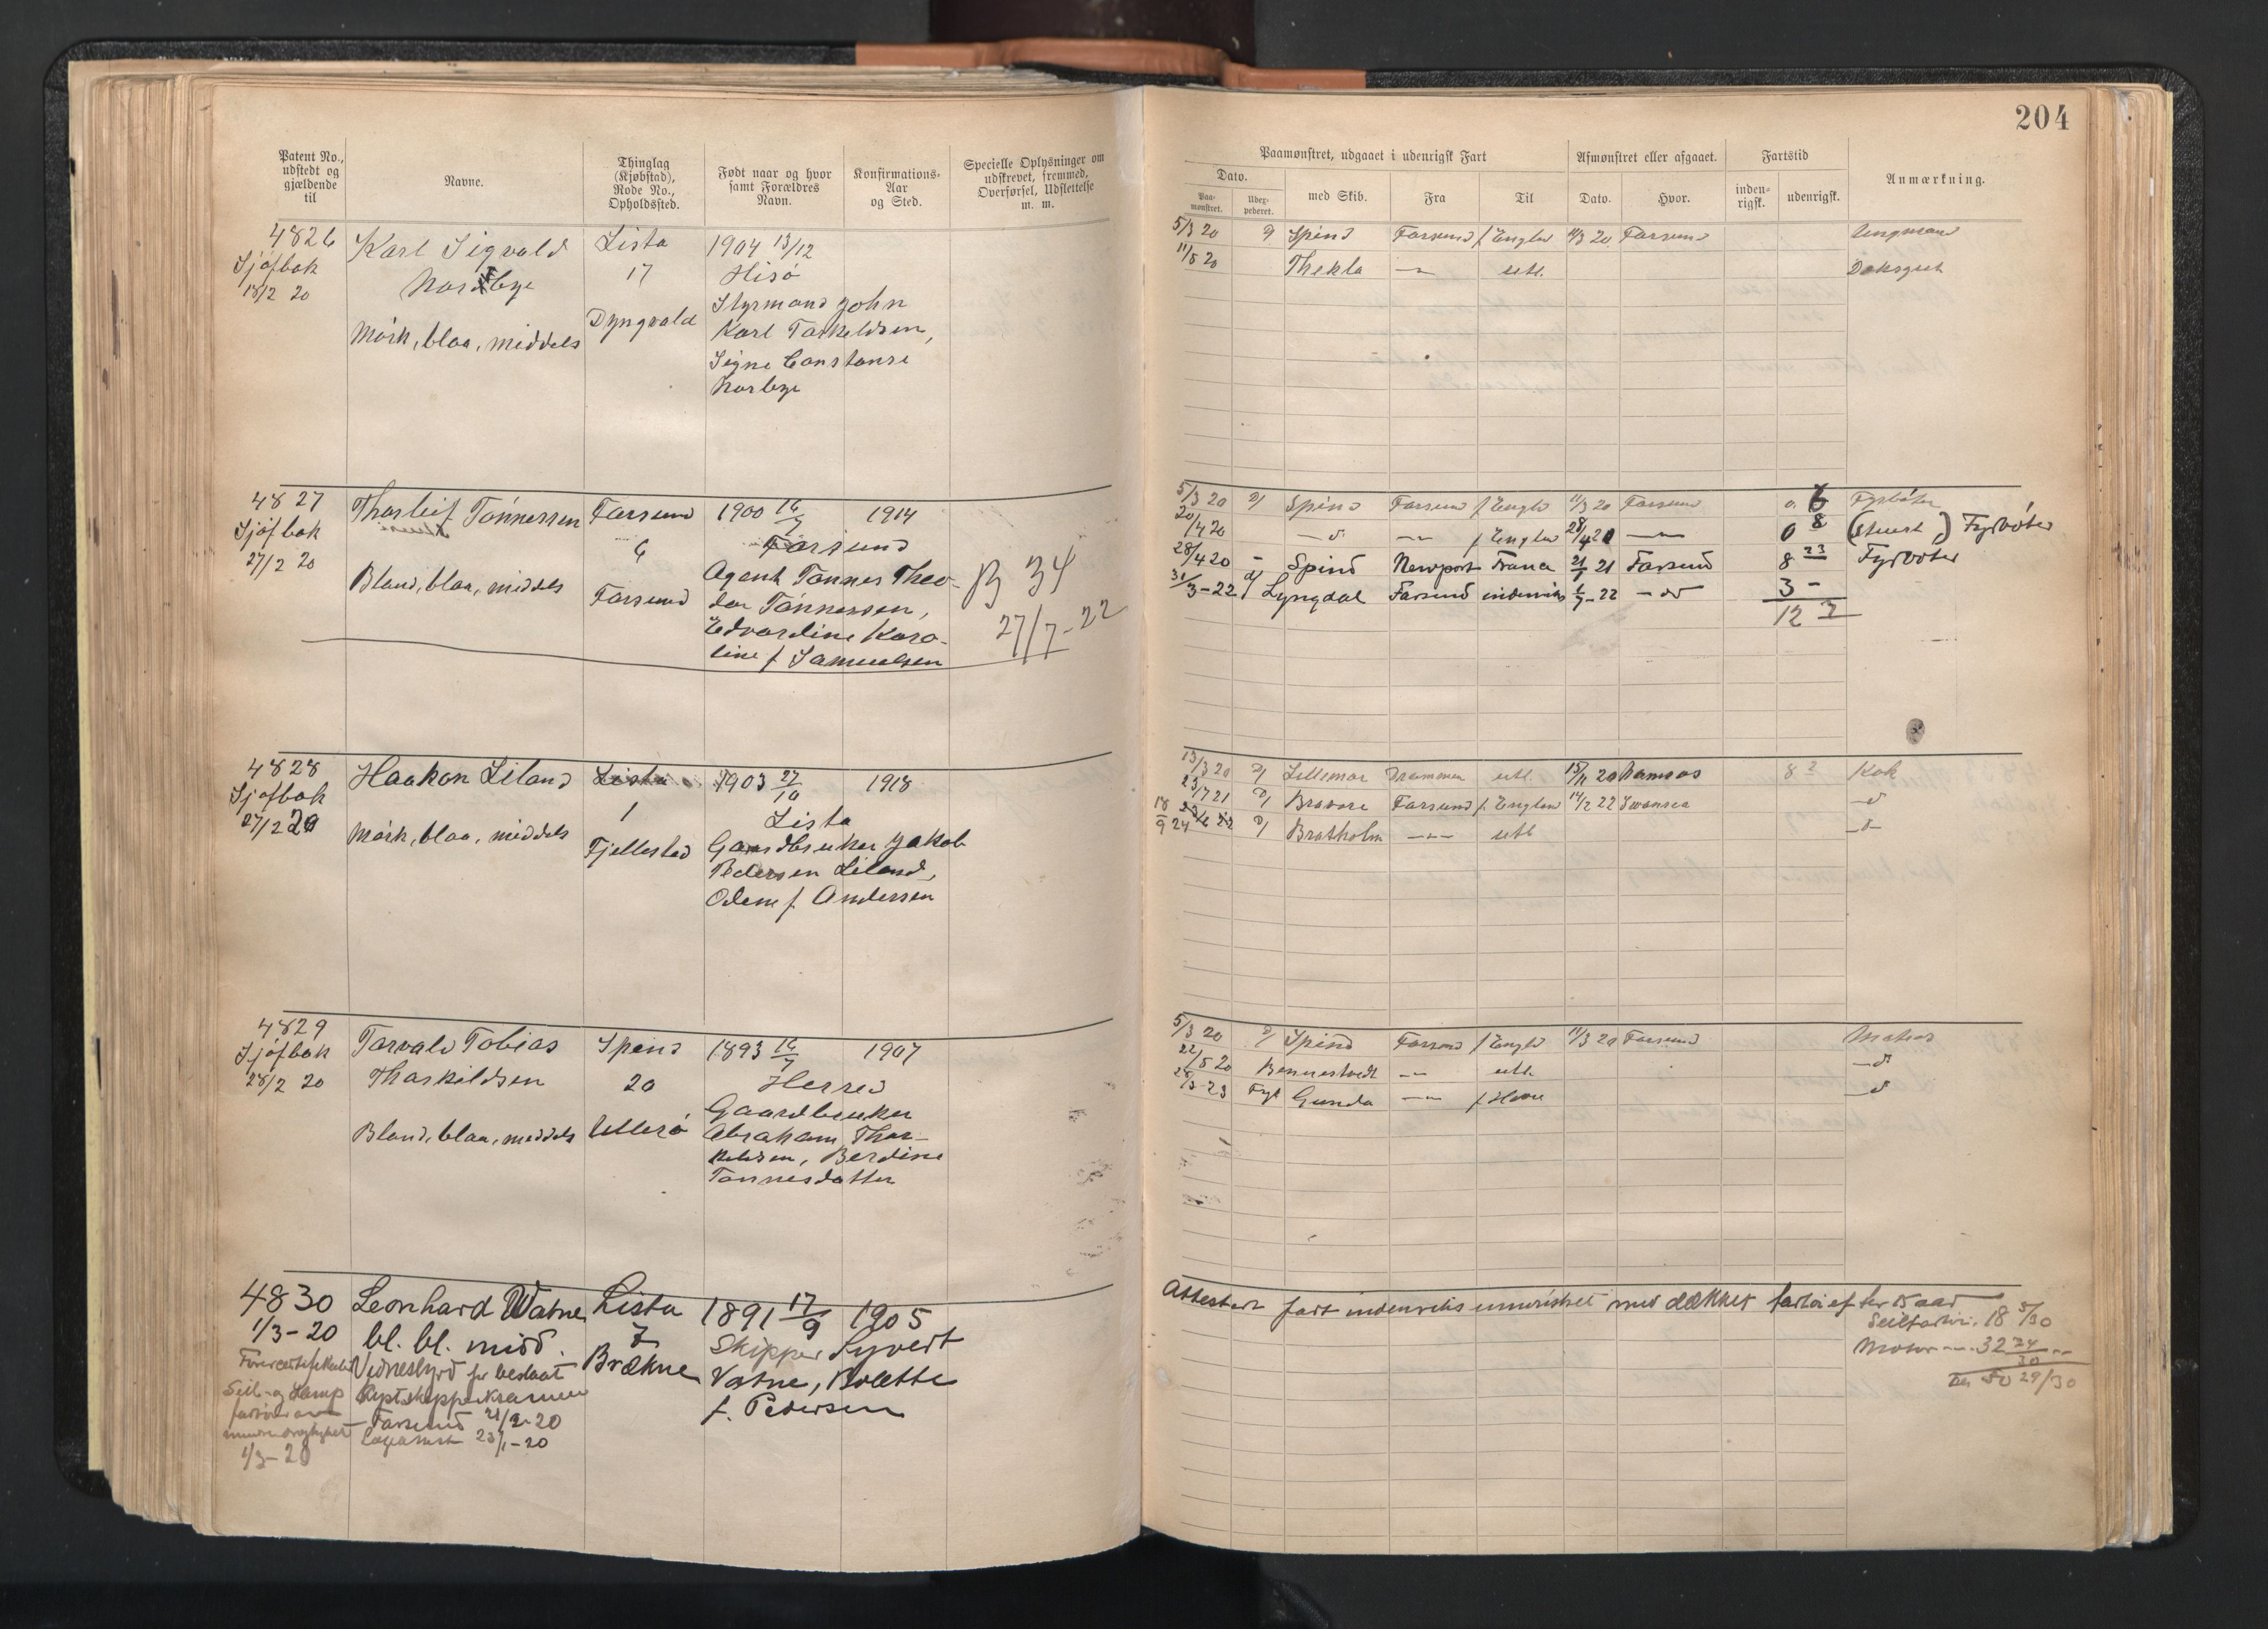 204
Patent No., udstedt og gjældende til
Navne.
Thinglag (Kjøbstad), Rode No., Opholdssted.
Født naar og hvor samt Forældres Navn.
Konfirmations-Aar og Sted.
Specielle Oplysninger om udskrevet, fremmed, Overførsel, Udslettelse m. m.
Paamønstret, udgaaet i udenrigsk Fart
Afmønstret eller afgaaet.
Fartstid
Anmærkning.
Dato.
Paa-mønstret.
Udex-pederet.
med Skib.
Fra
Til
Dato.
Hvor.
inden-rigsk.
udenrigsk.
4826
Sjøfbok
18/2 20
Karl Sigvald
Norbye
Mörk, blaa, middels
Lista
17
Dyngvold
1904 13/12
Hisö
Styrmand John
Karl Torkeldsen,
Signe Constanse
Norbye
5/3 20 D/ Spind Farsund f Englan 11/3 20 Farsund Ungmand
11/5 20 Thekla -"- utl. Deksgut
4827
Sjøfbok
27/2 20
Thorleif Tönnessen
Blond, blaa, middels
Farsund
4
Farsund
1900 16/7 1914
Farsund
Agent Tønnes Theo-
dor Tönnessen,
Edvardine Karo-
line f. Samuelsen
B 34
27/7-22
5/3 20 D/ Spind Farsund f Engld 11/3 20 Farsund 0 6 Fyrböter
20/4 20 -d- -"- f Englan 28/4 20 -"- 0 8 (Stuert) Fyrböter
28/4 20 - Spind Newport Frana 21/1 21 Farsund 8 23 Fyrböter
31/3-22 D/ Lyngdal Farsund indenriks 6/7-22 -d- 3 -
12 7
4828
Sjøfbok
27/2 20
Haakon Liland
Mörk, blaa, middels
Lista
1
Fjellestad
1903 27/10 1918
Lista
Gaardbruker Jakob
Pedersen Liland,
Odene f. Andersen
13/3 20 D/ Lillemor Drammen utl. 15/11 20 Namsos 8 2 Kok
23/7 21 D/ Bravore Farsund f. Englan 14/2 22 Swansea -d-
18/9 24 D/ Bratholm -"- utl -d-
4829
Sjøfbok
28/2 20
Torvald Tobias
Thorkildsen
Blond, blaa, middels
Spind
20
Ullerö
1893 16/7 1907
Herred
Gaardbruker
Abraham Thor-
kildsen, Berdine
Tønnesdatter
5/3 20 D/ Spind Farsund f Engld 11/3 20 Farsund Matros
22/5 20 Bennestvedt -"- utl. -d-
28/3-23 Gunda -"- -d-
4830
1/3-20
Leonhard Watne
bl. bl. midd.
Vidnesbyrd for bestaat
Kystskippereksamen
Farsund 21/2-20
Lægeattest 23/1-20
Seil- og Damp
1/3-20
Lista
7
Brækne
1891 17/9 1905
Skipper Syvert
Vatne, Bolette
f. Pedersen
Attestert fart indenriks umønstret med dækket fartøi efter 15 aar
Seilfartøi. 18 5/30
Motor -"- 32 24/30 -"-
50 29/30